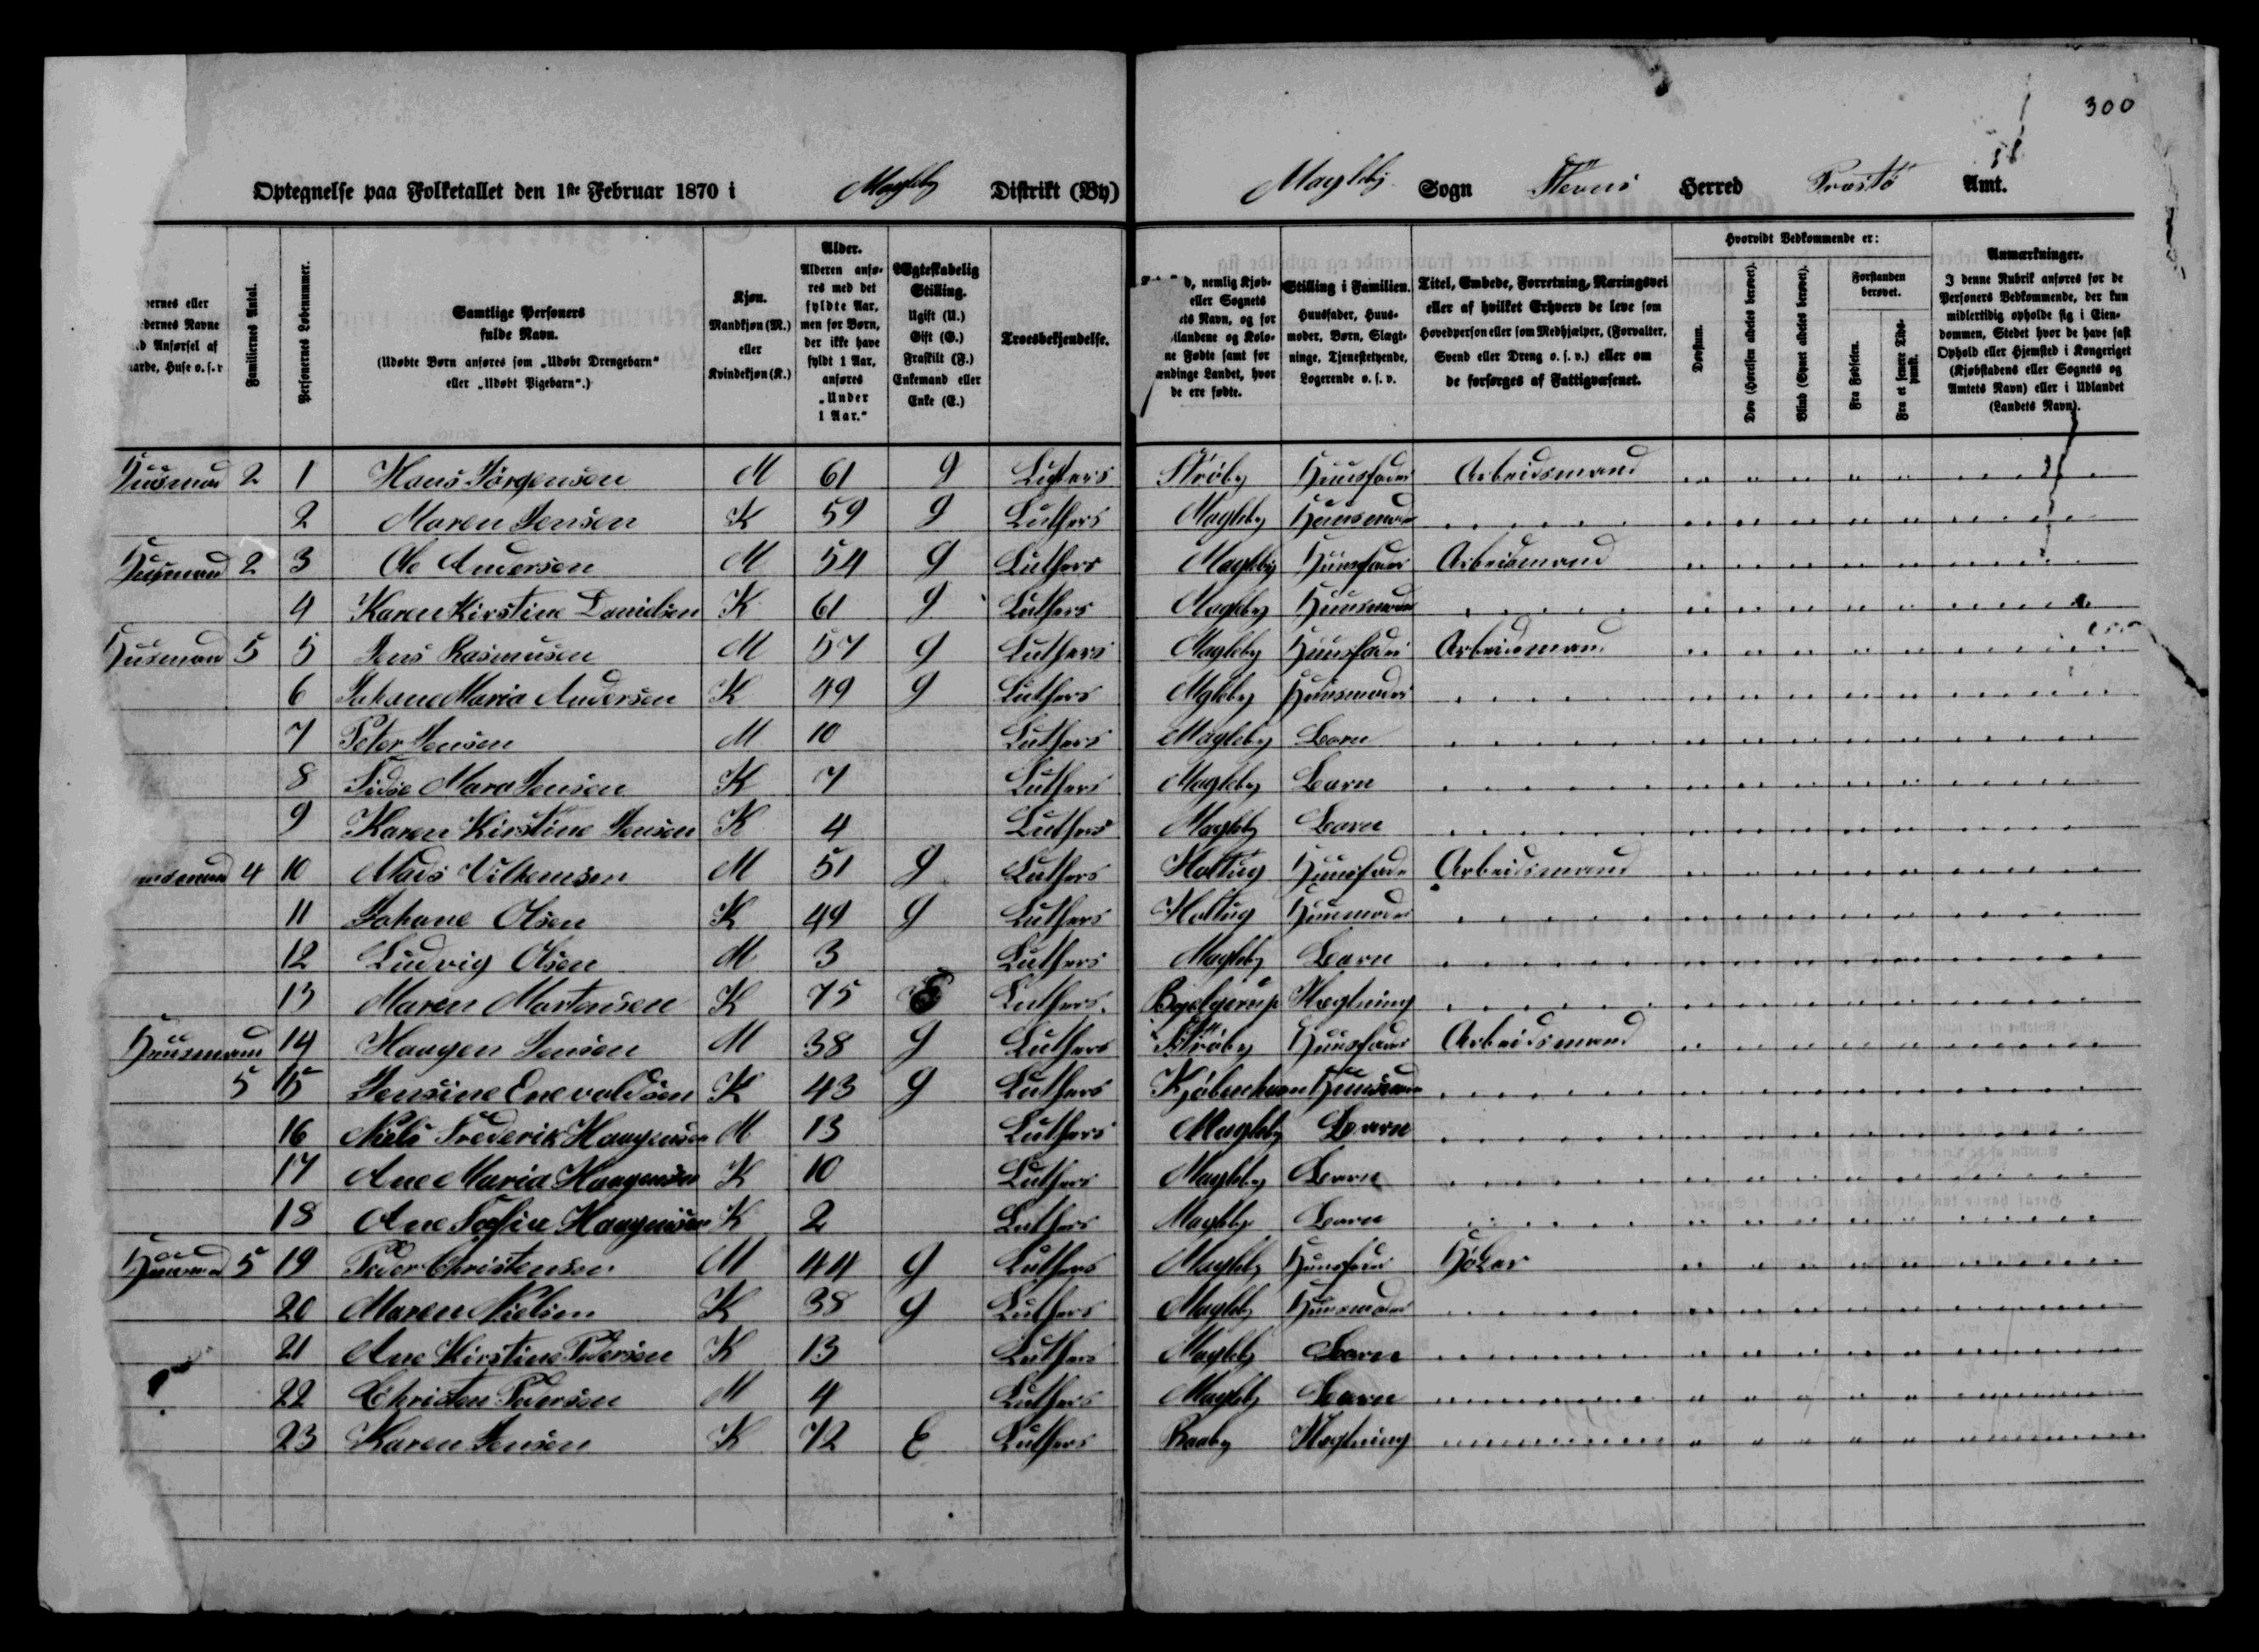 300
Optegnelse paa Folketallet den 1ste Februar 1870 i Magleby Distrikt (By) Magleby Sogn Stevns Herred Præstø Amt.
ernes eller
dernes Navne
d Anførsel af
aarde, Huse o. s. v
Familiernes Antal.
Personernes Løbenummer.
Samtlige Personers
fulde Navn.
(Udøbte Børn anføres som „Udøbt Drengebarn“
eller „Udøbt Pigebarn“.)
Kjøn.
Mandkjøn (M.)
eller
Kvindekjøn (K.)
Alder.
Alderen anfø-
res med det
fyldte Aar,
men for Børn,
der ikke have
fyldt 1 Aar,
anføres
„Under
1 Aar.“
Ægteskabelig
Stilling.
Ugift (U.)
Gift (G.)
Fraskilt (F.)
Enkemand eller
Enke (E.)
Troesbekjendelse.
d, nemlig Kjøb-
eller Sognets
ts Navn, og for
ilandene og Kolo-
ne Fødte samt for
ændinge Landet, hvor
de ere fødte.
Stilling i Familien.
Huusfader, Huus-
moder, Børn, Slægt-
ninge, Tjenestetyende,
Logerende o. s. v.
Titel, Embede, Forretning, Næringsvei
eller af hvilket Erhverv de leve som
Hovedperson eller som Medhjælper, (Forvalter,
Svend eller Dreng o. s. v.) eller om
de forsørges af Fattigvæsenet.
Hvorvidt Vedkommende er:
Døvstum.
Døv (Hørelsen aldeles berøvet).
Blind (Synet aldeles berøvet).
Forstanden
berøvet.
Fra Fødselen.
Fra et senere Tids-
punkt.
Anmærkninger.
I denne Rubrik anføres for de
Personers Vedkommende, der kun
midlertidig opholde sig i Eien-
dommen, Stedet hvor de have fast
Ophold eller Hjemsted i Kongeriget
(Kjøbstadens eller Sognets og
Amtets Navn) eller i Udlandet
(Landets Navn).
Huusmand 2 1 Hans Jörgensen M 61 g Luthers Ströby Huusfader Arbeidsmand
2 Maren Jensen K 59 g Luthers Magleby Huusmoder
Huusmand 2 3 Ole Andersen M 54 g Luthers Magleby Huusfader Arbeidsmand
4 Karen Kirstine Danielsen K 61 g Luthers Magleby Huusmoder
Husmand 5 5 Jens Rasmusen M 57 g Luthers Magleby Huusfader Arbeidsmand
6 Johane Maria Andersen K 49 g Luthers Mgleby Huusmoder
7 Peter Jensen M 10 Luthers Magleby Barn
8 Sidse Mara Jensen K 7 Luthers Magleby Barn
9 Karen Kirstine Jensen K 4 Luthers Magleby Barn
usmand 4 10 Mads Vilhemsen M 51 g Luthers Holtug Huusfader Arbeidsmand
11 Johane Olsen K 49 g Luthers Holtug Huusmoder
12 Ludvig Olsen M 3 Luthers Magleby Barn
13 Maren Mortensen K 75 E Luthers Slægtning
Huusmand 14 Haagen Jensen M 38 g Luthers Ströby Huusfader Arbeidsmand
5 15 Jensine Enevoldsen K 43 g Luthers Kjöbenhavn Huusmoder
16 Niels Frederik Haagensen M 13 Luthers Magleby Barn
17 Ane Maria Haagensen K 10 Luthers Magleby Barn
18 Ane Sofie Haagensen K 2 Luthers Magleby Barn
Huusmand 5 19 Peder Christensen M 44 g Luthers Magleby Huusfader Höker
20 Maren Nielsen K 38 g Luthers Magleby Huusmoder
21 Ane Kirstine Pedersen K 13 Luthers Magleby Barn
22 Christen Pedersen M 4 Luthers Magleby Barn
23 Karen Jensen K 72 E Luthers Raaby Slægtning